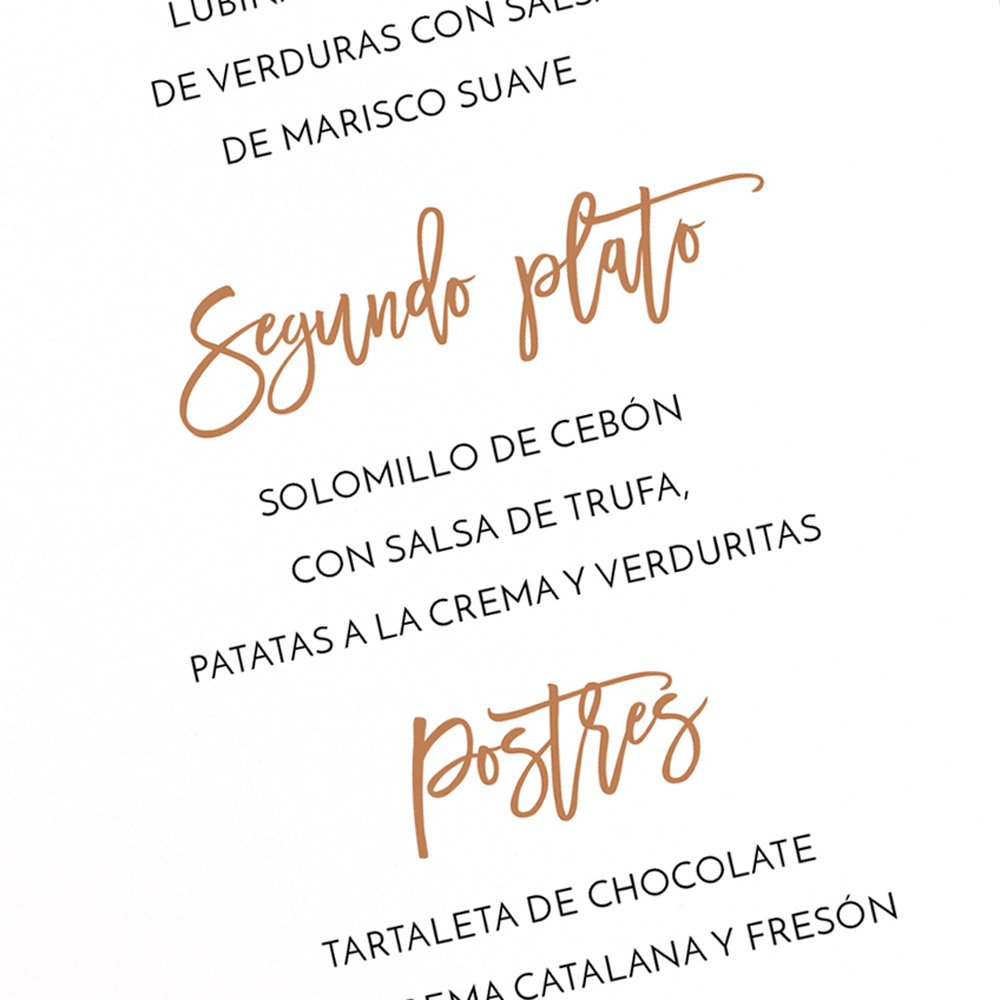 DE VERDURAS CON SALSA
DE MARISCO SUAVE
Segundo plato
SOLOMILLO DE CEBÓN
CON SALSA DE TRUFA,
PATATAS A LA CREMA Y VERDURITAS
Postres
TARTALETA DE CHOCOLATE
CATALANA Y FRESÓN